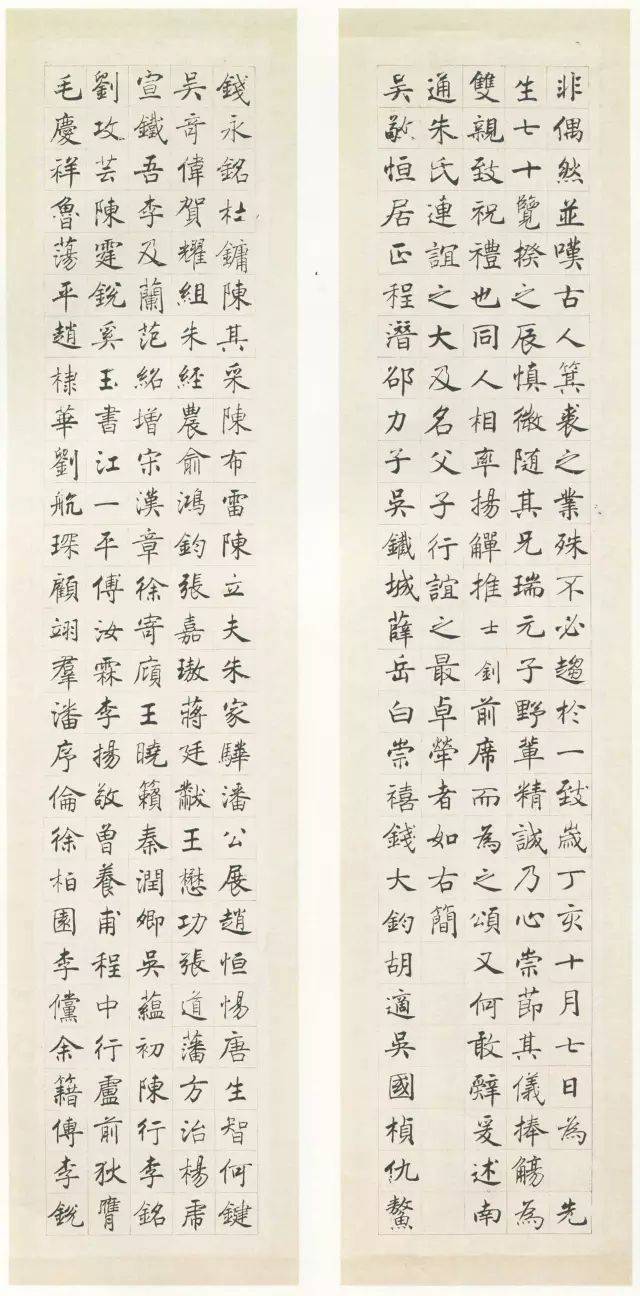 非偶然並嘆古人箕裘之業殊不必趨於一致歲丁亥十月七日為 先
生七十覽揆之辰慎微隨其兄瑞元子野輩精誠乃心崇節其儀捧觴為
雙親致祝禮也同人相率揚觶推士釗前席而為之頌又何敢辭爰述南
通朱氏連誼之大及名父子行誼之最卓犖者如右簡
吳敬恒居正程潛邵力子吳鐵城薛岳白崇禧錢大鈞胡適吳國楨仇鰲
錢永銘杜鏞陳其采陳布雷陳立夫朱家驊潘公展趙恒惕唐生智何鍵
吳奇偉賀耀組朱經農俞鴻鈞張嘉璈蔣廷黻王懋功張道藩方治楊虎
宣鐵吾李及蘭范紹增宋漢章徐寄廎王曉籟秦潤卿吳蘊初陳行李銘
劉攻芸陳霆銳奚玉書江一平傅汝霖李揚敬曾養甫程中行盧前狄膺
毛慶祥魯蕩平趙棣華劉航琛顧翊羣潘序倫徐柏園李儻余籍傳李銳